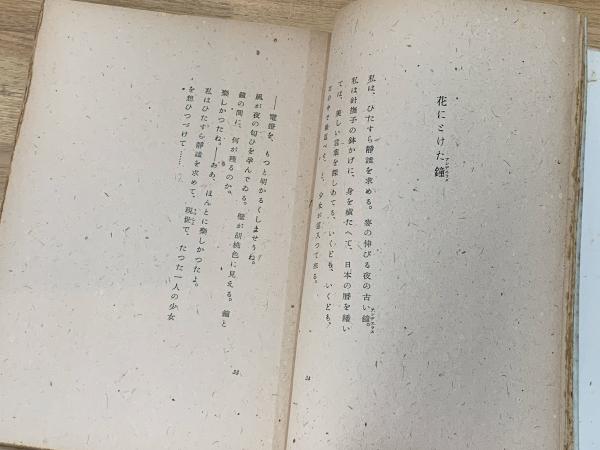 花にとけた鐘
アンゼラス
私は、ひたすら靜謐を求める。麥の伸びる夜の古い鐘。
アンゼラス
私は針撫子の鉢かげに、身を横たへて、日本の曆を繙い
ては、美しい言葉を探しあてる、いくども、いくども。
少女が這入つて來る。
――電燈を、もつと明かるくしませうね。
風が夜の匂ひを孕んでゐる。壁が胡桃色に見える。鐘と
鐘の間に、何が殘るのか。
樂しかつたね。――ああ、ほんとに樂しかつたよ。
私はひたすら靜謐を求めて、現世で、たつた一人の少女
を想ひつづけて……。
24